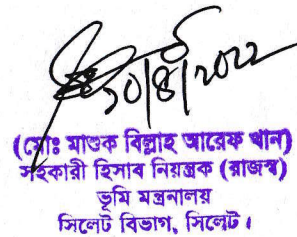 ১০/৪/২০২২
(মোঃ মাশুক বিল্লাহ আরেফ খান)
সহকারী হিসাব নিয়ন্ত্রক (রাজস্ব)
ভূমি মন্ত্রনালয়
সিলেট বিভাগ, সিলেট।